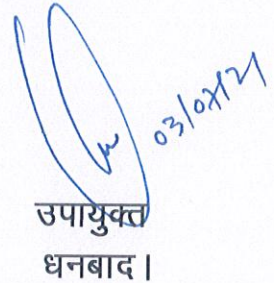 03/07/21
उपायुक्त
धनबाद।